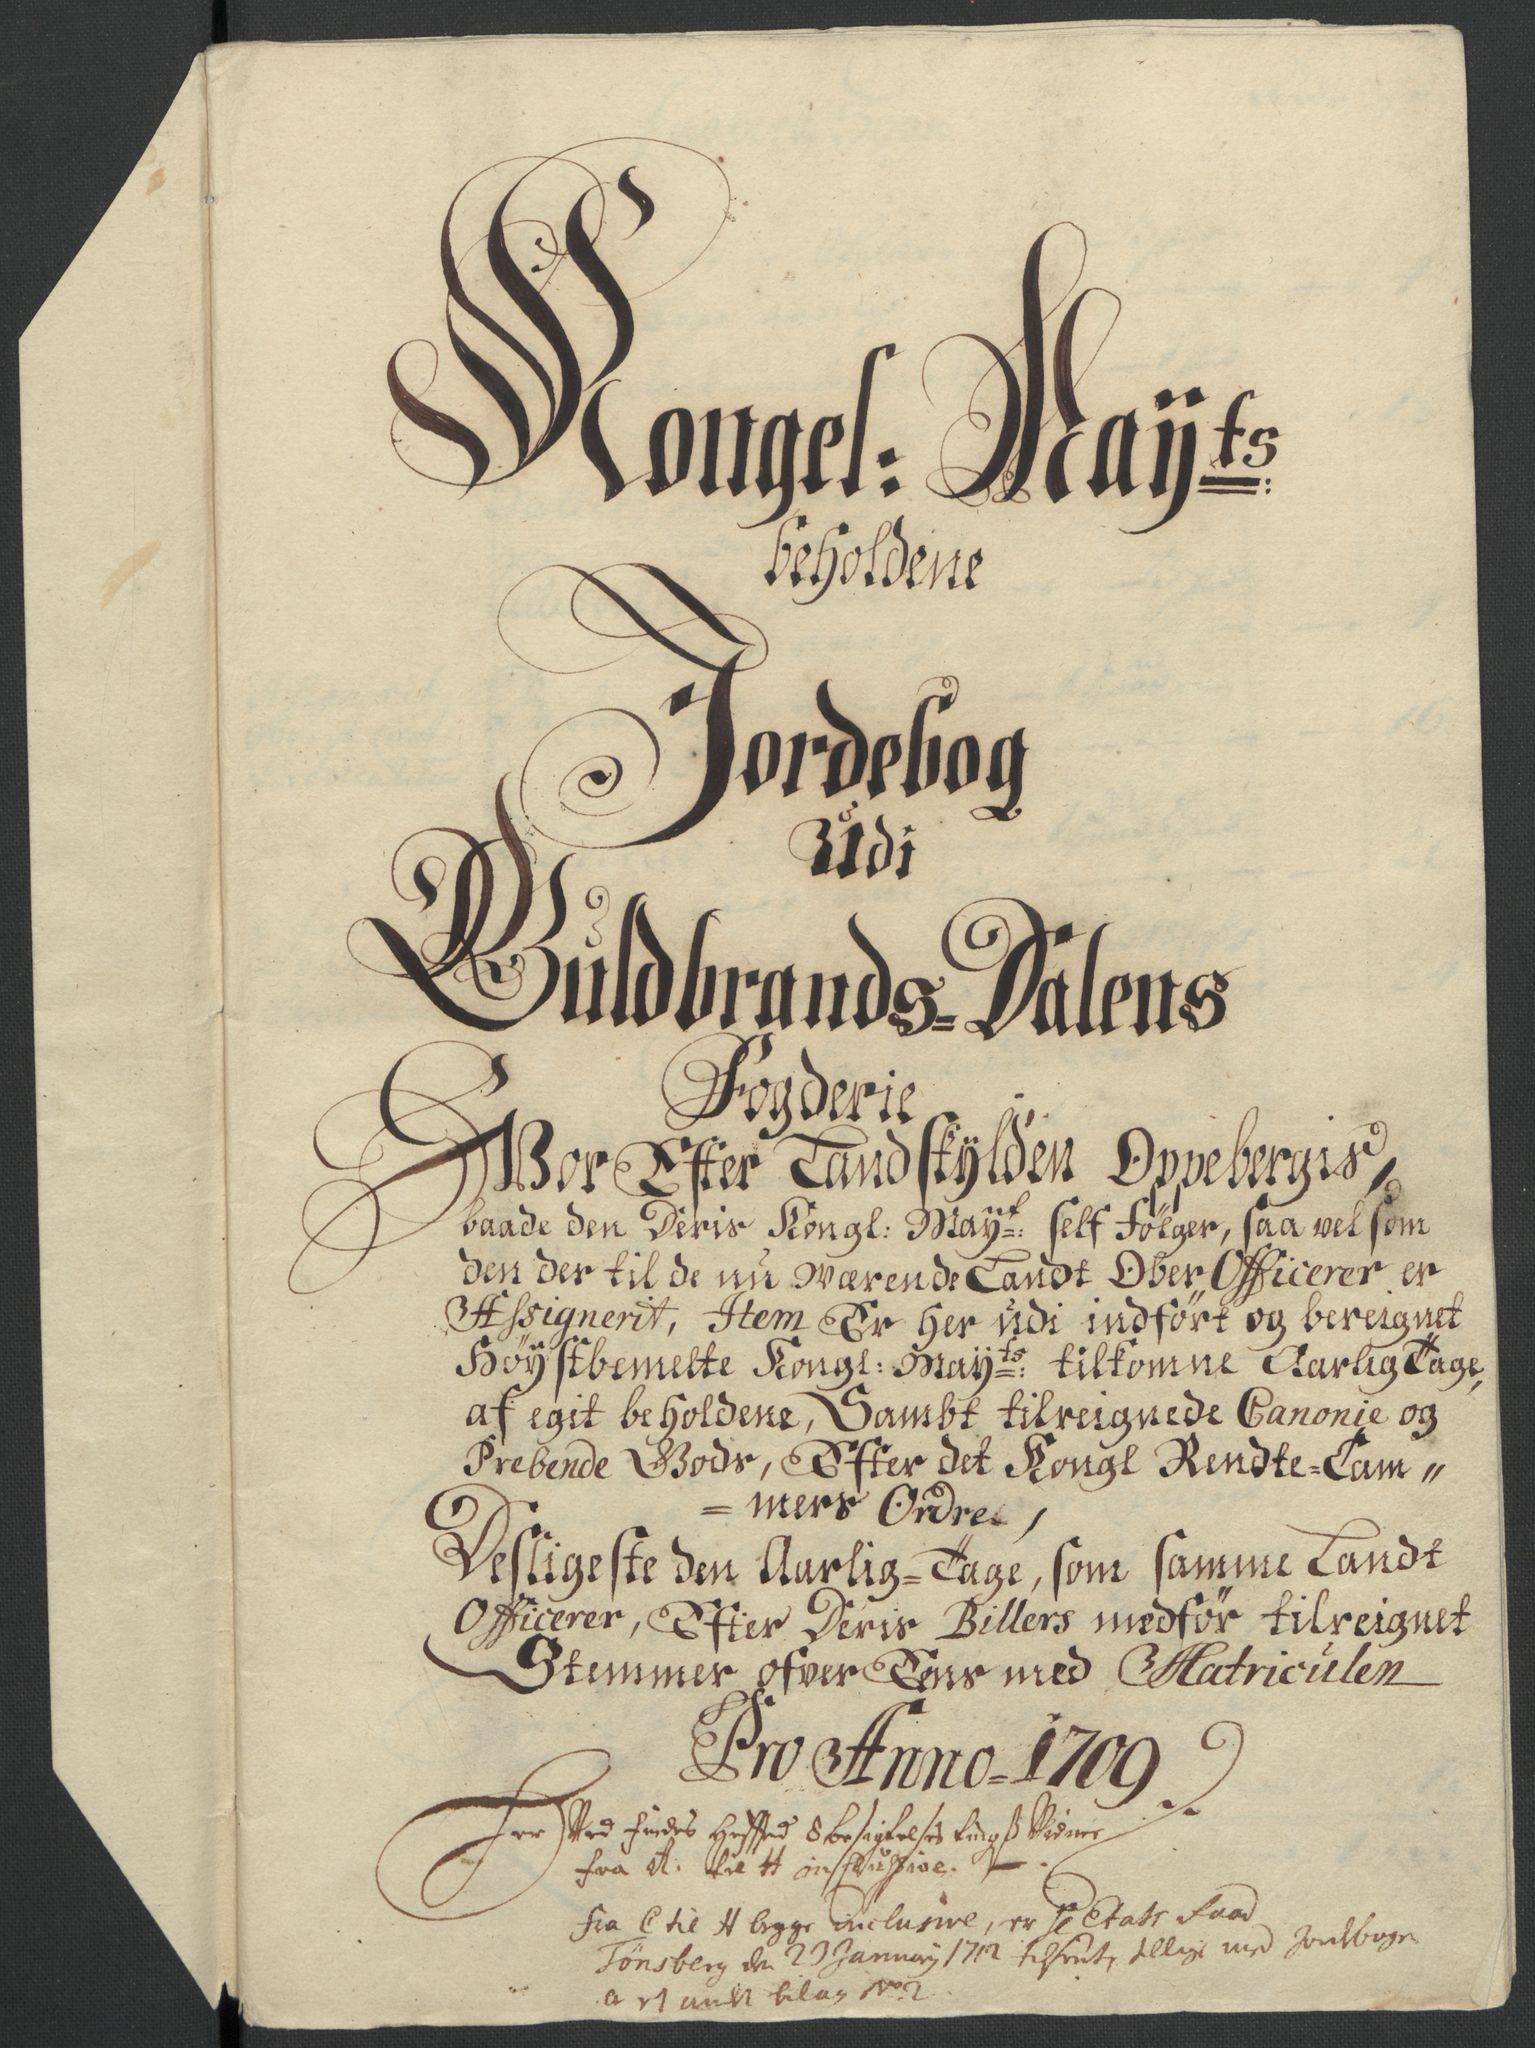 Kongel: Maÿts:
beholdene
Jordebog
Udi
Guldbrands=Dalens
Fogderie
Hvor Efter Landskÿlden Oppebergis,
baade den Deris Kongl: Maÿt: self Følger, saa vel som
den der til de nu værende Landt Ober Officerer er
Assignerit, Item Er her udi indført og bereignet
Høÿstbemelte Kongl: Maÿts: tilkomne Aarlig Tage,
af egit beholdene, Sambt tilreignede Canonie og
Prebende Gods, Efter det Kongl Rendte=Cam〃
=mers Ordre,
Desligeste den Aarlig=Tage, som samme Landt
Officerer, Efter Deris Billers medfør tilreignet
Stemmer ofver Ens med Matriculen
Pro Anno=1709
Her Ved findes Heffted 8 besigtelses tings Vidner
fra A. til H inclusive.
fra C til H begge inclusive, er Etats Raad
Tønsberg den 23 January 1712 tilsendt, tillige med Jordebogen
bilag No: 2.